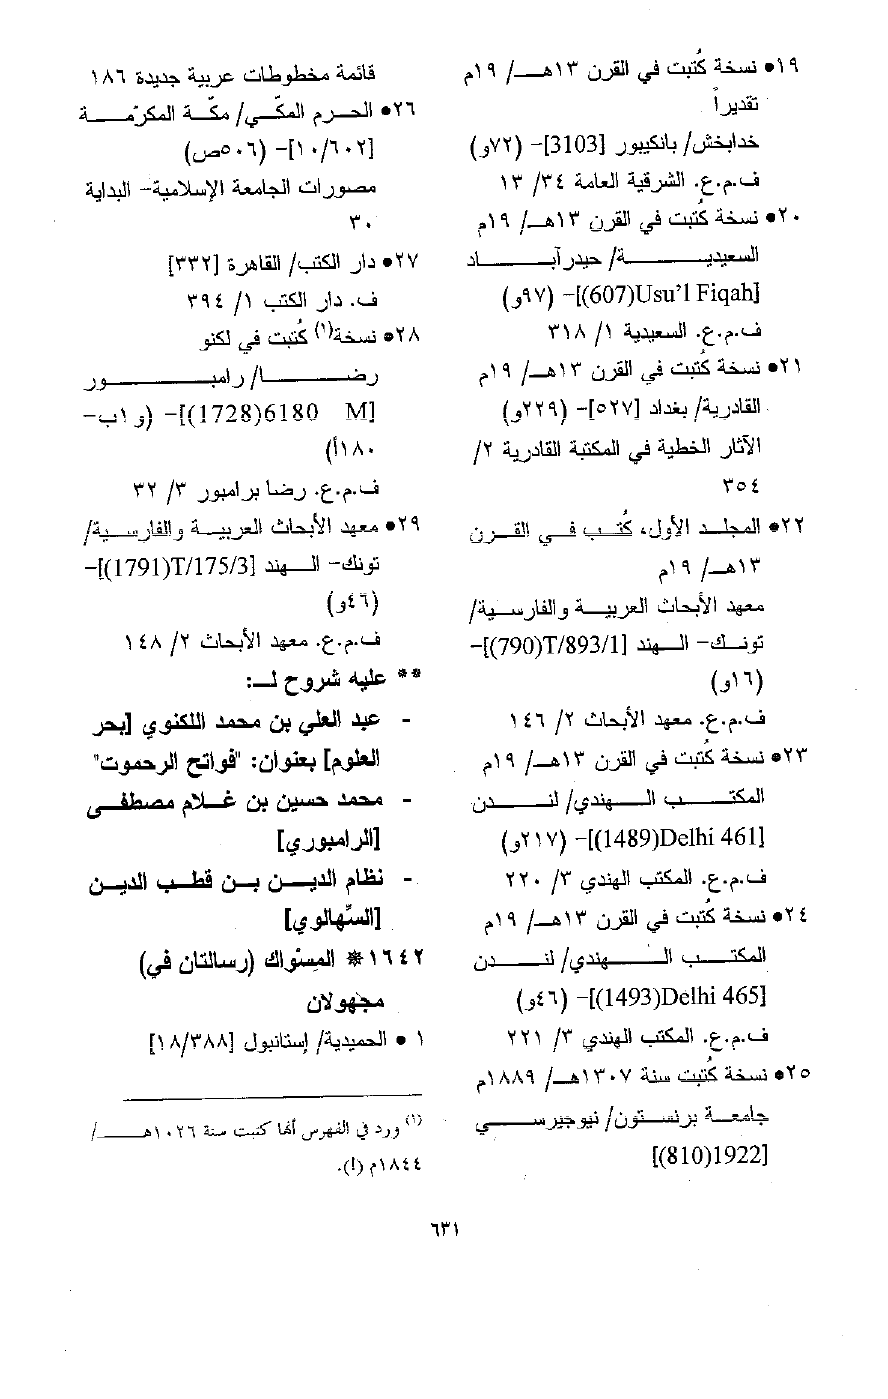 ١٩• نسخة كُتبت في القرن ١٣هـ/ ١٩م
تقديراً
خدابخش/ بانكيبور [3103]- (٧٢و)
ف.م.ع. الشرقية العامة ٣٤/ ١٣
٢٠• نسخة كُتبت في القرن ١٣هـ/ ١٩م
السعيدية/ حيدرآباد
[Usu'l Fiqah(607)]- (٩٧و)
ف.م.ع. السعيدية ١/ ٣١٨
٢١• نسخة كُتبت في القرن ١٣هـ/ ١٩م
القادرية/ بغداد [٥٢٧]- (٢٢٩و)
الآثار الخطية في المكتبة القادرية ٢/
٣٥٤
٢٢• المجلد الأول، كُتب في القرن
١٣هـ/ ١٩م
معهد الأبحاث العربية والفارسية/
تونك- الهند [T/893/1(790)]-
(١٦و)
ف.م.ع. معهد الأبحاث ٢/ ١٤٦
٢٣• نسخة كُتبت في القرن ١٣هـ/ ١٩م
المكتب الهندي/ لندن
[Delhi 461(1489)]- (٢١٧و)
ف.م.ع. المكتب الهندي ٣/ ٢٢٠
٢٤• نسخة كُتبت في القرن ١٣هـ/ ١٩م
المكتب الهندي/ لندن
[Delhi 465(1493)]- (٤٦و)
ف.م.ع. المكتب الهندي ٣/ ٢٢١
٢٥• نسخة كُتبت سنة ١٣٠٧هـ/ ١٨٨٩م
جامعة برنستون/ نيوجيرسي
[1922(810)]
قائمة مخطوطات عربية جديدة ١٨٦
٢٦• الحرم المكّي/ مكّة المكرّمة
[١٠/٦٠٢]- (٥٠٦ص)
مصورات الجامعة الإسلامية- البداية
٣٠
٢٧• دار الكتب/ القاهرة [٣٣٢]
ف. دار الكتب ١/ ٣٩٤
٢٨• نسخة(١) كُتبت في لكنو
رضا/ رامبور
[M 6180(1728)]- (و ١ب-
١٨٠أ)
ف.م.ع. رضا برامبور ٣/ ٣٢
٢٩• معهد الأبحاث العربية والفارسية/
تونك- الهند [T/175/3(1791)]-
(٤٦و)
ف.م.ع. معهد الأبحاث ٢/ ١٤٨
** عليه شروح لـ:
- عبد العلي بن محمد اللكنوي [بحر
العلوم] بعنوان: "فواتح الرحموت"
- محمد حسين بن غلام مصطفى
[الرامبوري]
- نظام الدين بن قطب الدين
[السّهالوي]
١٦٤٢* المسْواك (رسالتان في)
مجهولان
١ • الحميدية/ إستانبول [١٨/٣٨٨]
(١) ورد في الفهرس أنها كتبت سنة ١٠٢٦هـ/
١٨٤٤م (!).
٦٣١